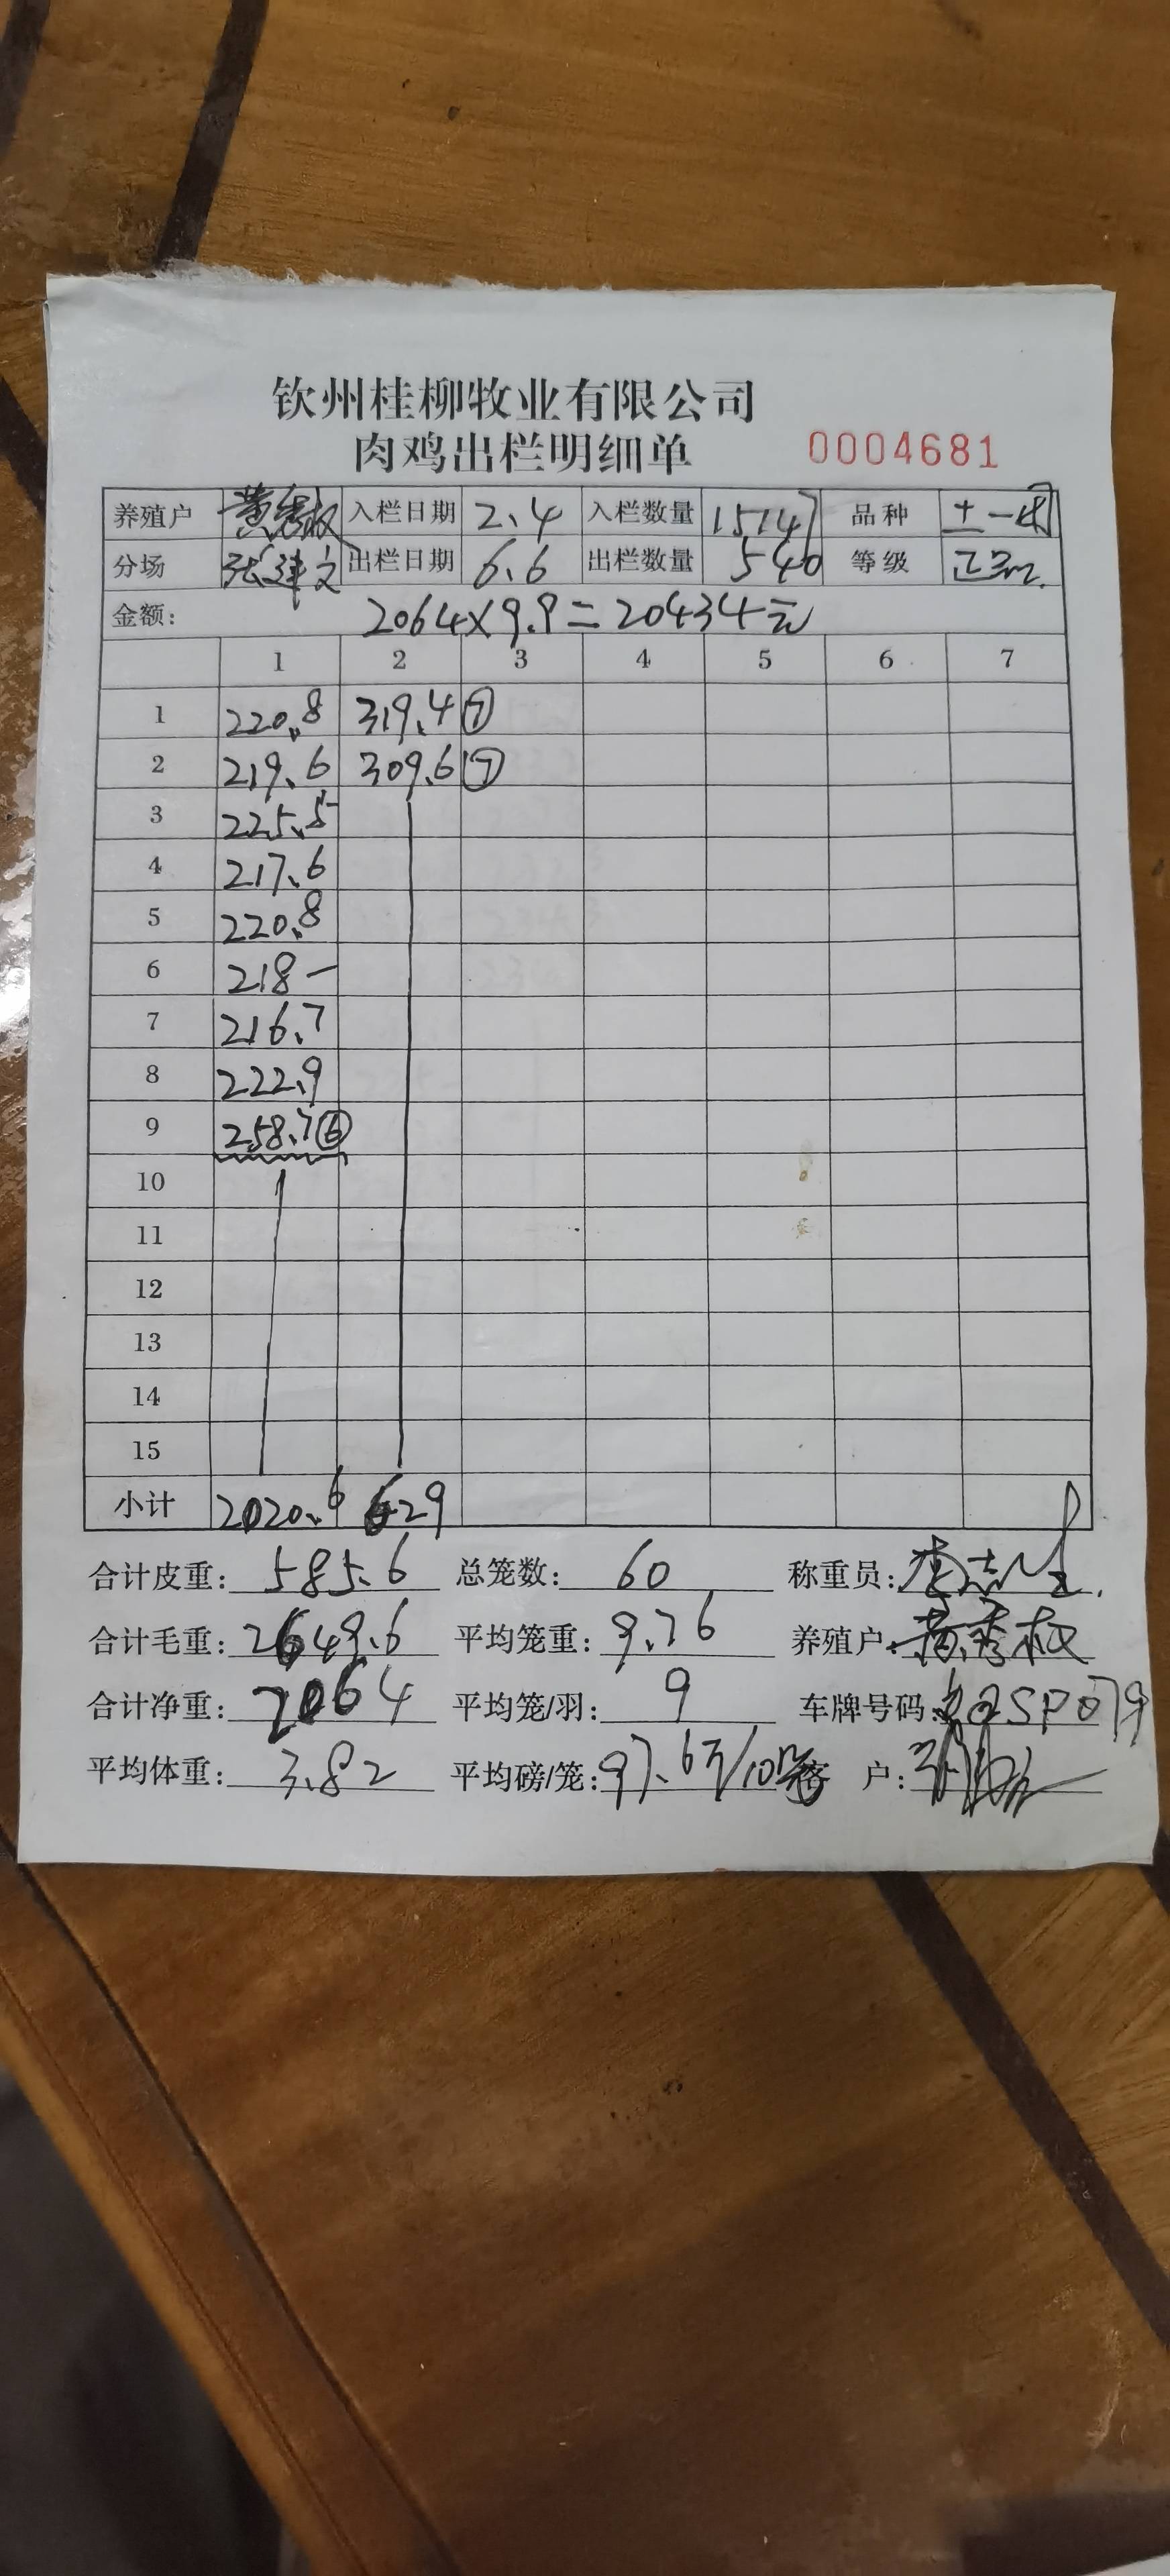 钦州桂柳牧业有限公司
肉鸡出栏明细单 0004681
养殖户 黄秀叔 入栏日期 2.4 入栏数量 15147 品种 土一
分场 张建文 出栏日期 6.6 出栏数量 540 等级 正品
金额: 2064×9.9=20434元
1 2 3 4 5 6 7
1 220.8 319.4⑦
2 219.6 309.6⑦
3 225.5
4 217.6
5 220.8
6 218一
7 216.7
8 222.9
9 258.7⑥
10
11
12
13
14
15
小计 2020.6 629
合计皮重: 585.6 总笼数: 60 称重员:
合计毛重: 2649.6 平均笼重: 9.76 养殖户: 黄秀叔
合计净重: 2064 平均笼/羽: 9 车牌号码:
平均体重: 3.82 平均磅/笼: 97.6斤/10笼 客 户: